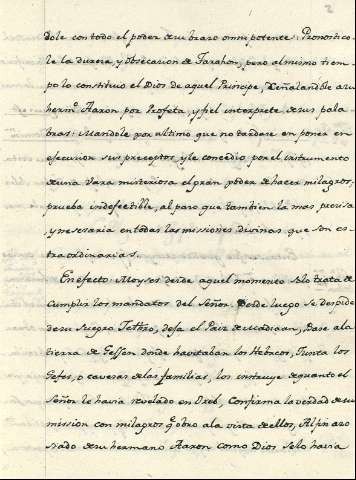 2
dole con todo el poder de su brazo omnipotente. Pronostico-
le la dureza, y obsecacion de Farahon, pero al mismo tiem-
po lo constituio el Dios de aquel Principe, señalandole a su
herm.º Aaron por Profeta, y fiel interprete de sus pala
bras: Mandole por ultimo que no tardase en poner en
efecucion sus preceptos y le concedio por el instrumento
de una vara misteriosa el gran poder de hacer milagros,
prueba indefectible, al paro que tambien la mas precisa
y nesesaria en todas las missiones divinas que son es-
traordinarias.
En efecto Moyses desde aquel momento solo trata de
cumplir los mandatos del Señor. Desde luego se despide
de su Suegro Jethro, defa el Pais de Madian, Pase a la
tierra de Gessen donde havitaban los Hebreos, Junta los
Gefes, o caveras de las familias, los instruye de quanto el
Señor le havia revelado en Oreb, Confirma la verdad de su
mission con milagros q.e obro a la vista de ellos, Al fin aso
siado de su hermano Aaron como Dios se lo havia